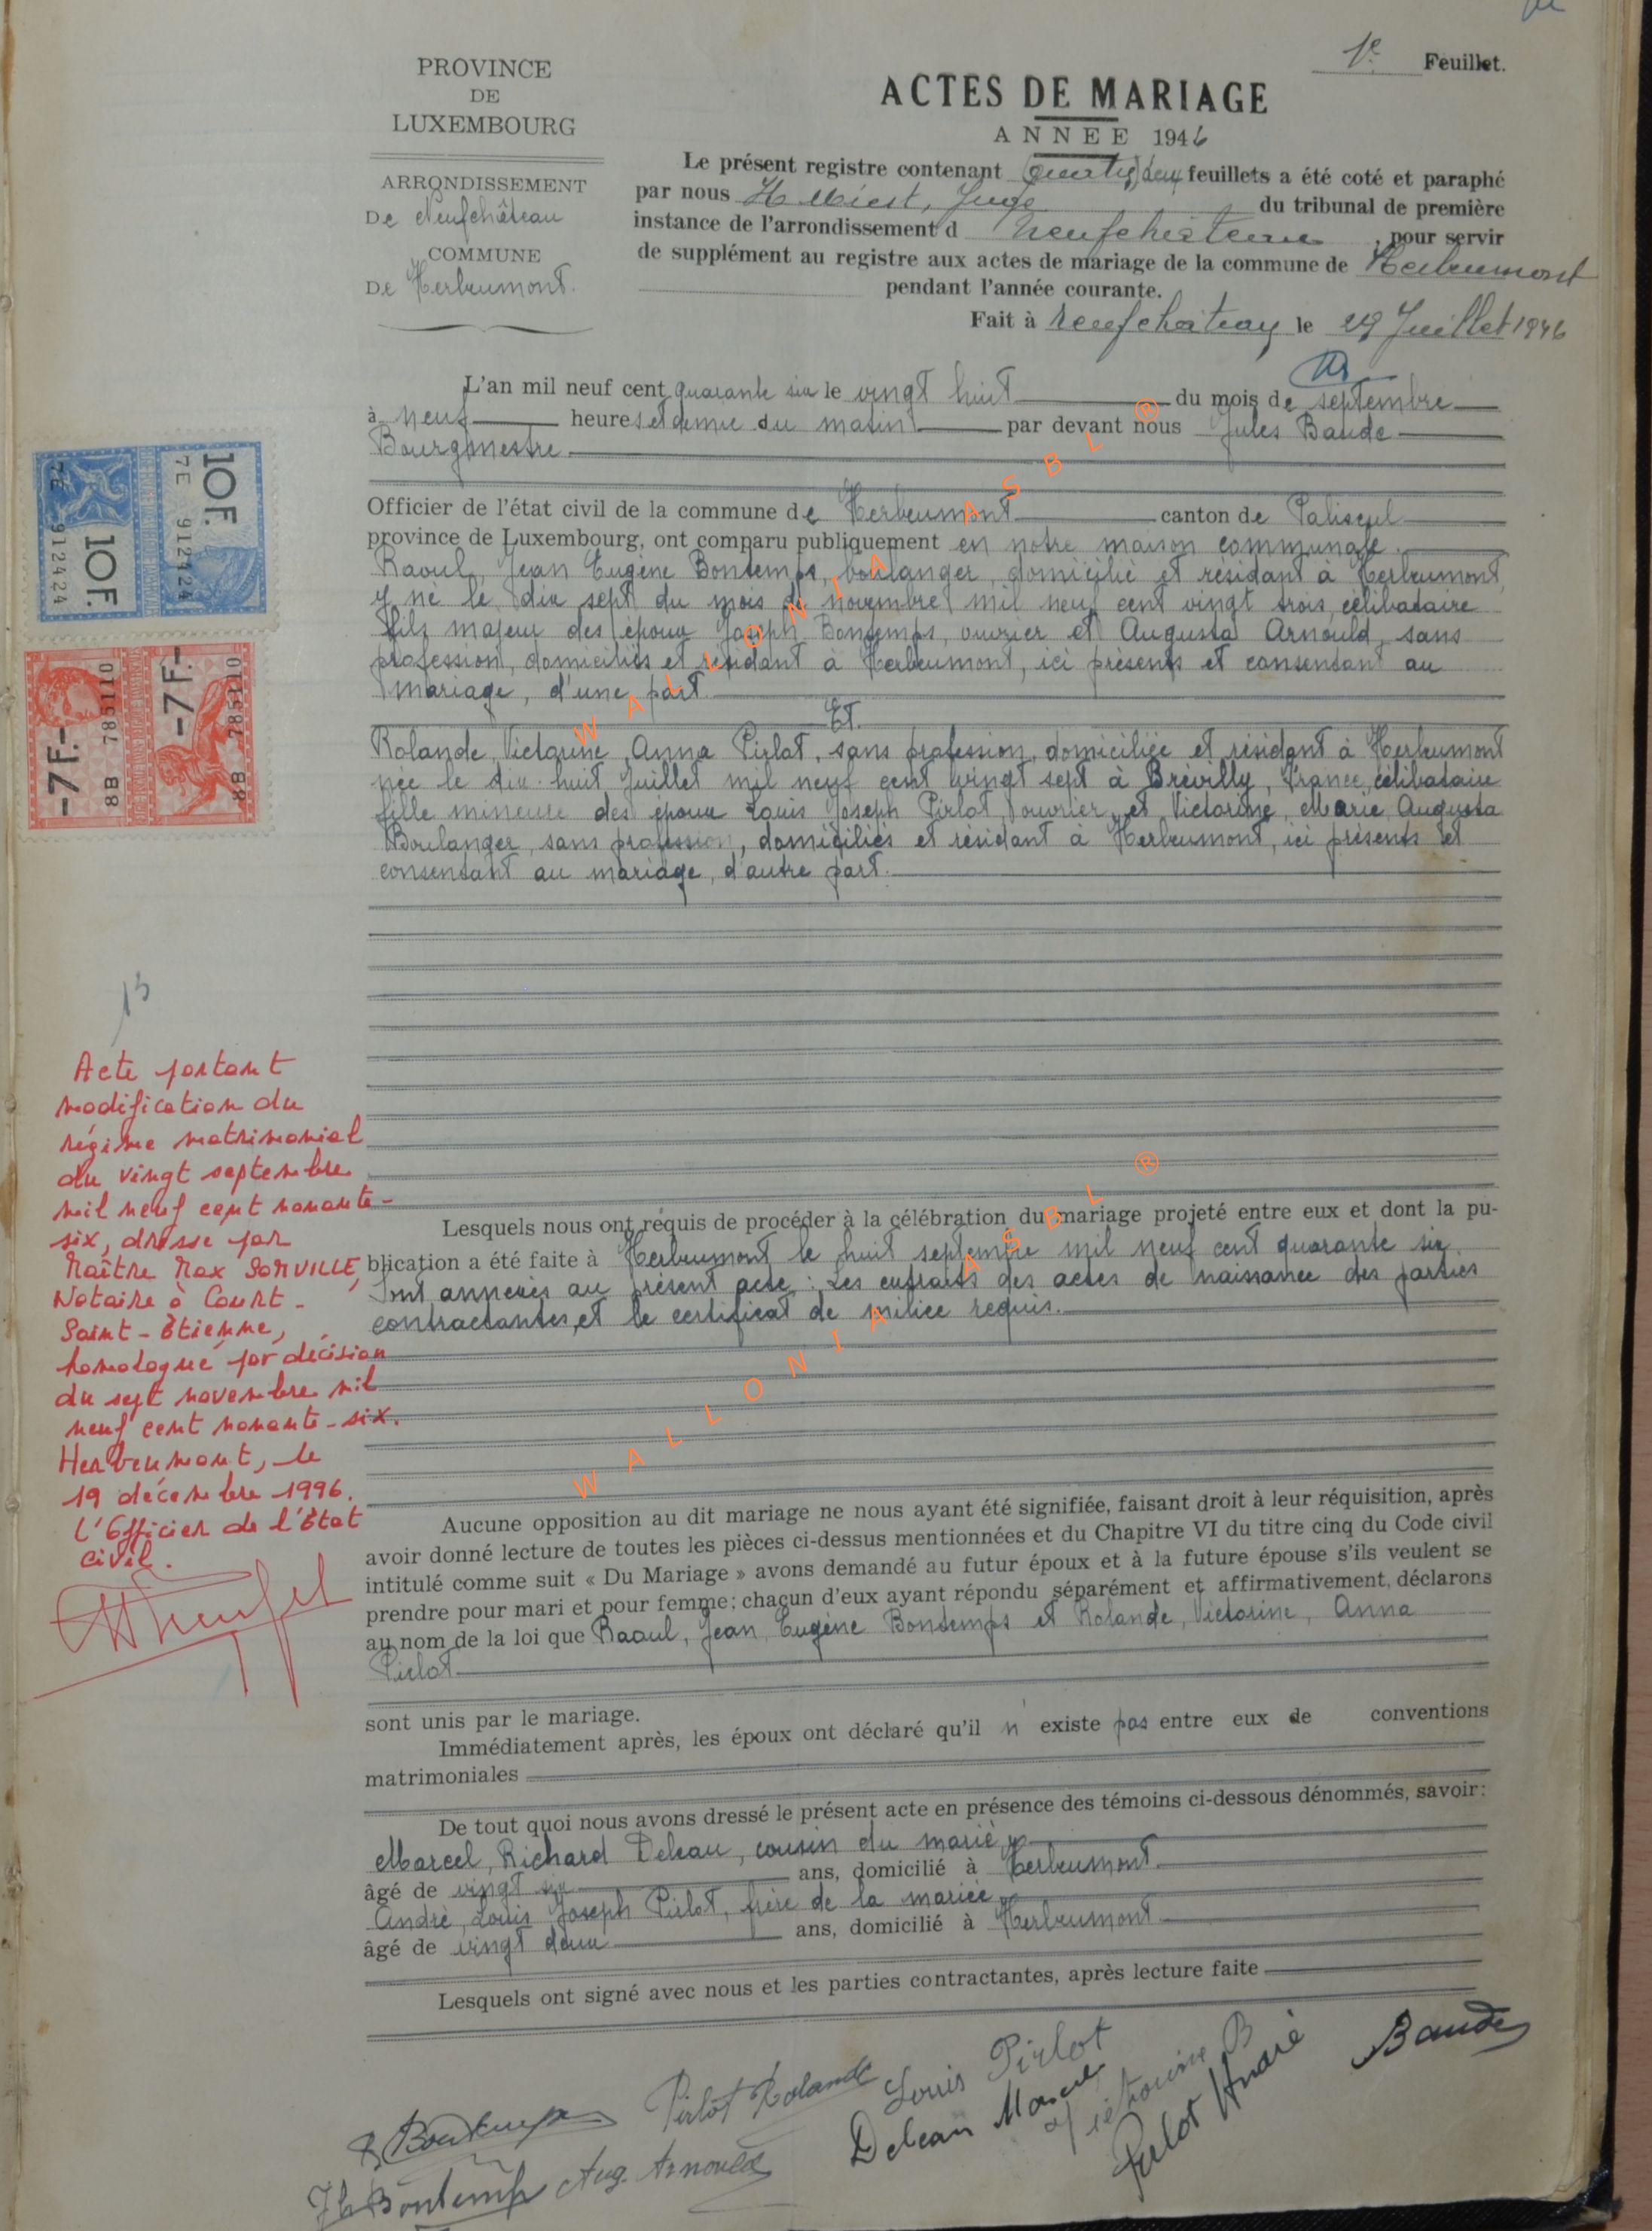 1e Feuillet.
PROVINCE
DE
LUXEMBOURG
ARRONDISSEMENT
De Neufchâteau
COMMUNE
De Herbeumont.
ACTES DE MARIAGE
ANNEE 1946
Le présent registre contenant deux feuillets a été coté et paraphé
par nous Juge du tribunal de première
instance de l'arrondissement d Neufchateau, pour servir
de supplément au registre aux actes de mariage de la commune de Herbeumont
pendant l'année courante.
Fait à Neufchateau le 29 Juillet 1946
L'an mil neuf cent quarante six le vingt huit du mois de septembre
à neuf heures et demie du matin par devant nous Jules Baude
Bourgmestre
Officier de l'état civil de la commune de Herbeumont canton de Paliseul
province de Luxembourg, ont comparu publiquement en notre maison communale.
Raoul, Jean Eugène Bontemps, boulanger, domicilié et résidant à Herbeumont,
y né le dix sept du mois de novembre mil neuf cent vingt trois, célibataire
fils majeur des époux Joseph Bontemps, ouvrier et Augusta Arnould, sans
profession, domiciliés et résidant à Herbeumont, ici présents et consentant au
mariage, d'une part.
Et.
Rolande, Victorine, Anna Pirlot, sans profession, domiciliée et résidant à Herbeumont
née le dix-huit Juillet mil neuf cent vingt sept à Brévilly, France, célibataire
fille mineure des époux Louis Joseph Pirlot, ouvrier, et Victorine, Marie, Augusta
Boulanger, sans profession, domiciliés et résidant à Herbeumont, ici présents et
consentant au mariage, d'autre part.
Lesquels nous ont requis de procéder à la célébration du mariage projeté entre eux et dont la pu-
blication a été faite à Herbeumont le huit septembre mil neuf cent quarante six.
Sont annexés au présent acte : Les extraits des actes de naissance des parties
contractantes, et le certificat de milice requis.
Aucune opposition au dit mariage ne nous ayant été signifiée, faisant droit à leur réquisition, après
avoir donné lecture de toutes les pièces ci-dessus mentionnées et du Chapitre VI du titre cinq du Code civil
intitulé comme suit « Du Mariage » avons demandé au futur époux et à la future épouse s'ils veulent se
prendre pour mari et pour femme; chacun d'eux ayant répondu séparément et affirmativement, déclarons
au nom de la loi que Raoul, Jean, Eugène Bontemps et Rolande, Victorine, Anna
Pirlot
sont unis par le mariage.
Immédiatement après, les époux ont déclaré qu'il n'existe pas entre eux de conventions
matrimoniales
De tout quoi nous avons dressé le présent acte en présence des témoins ci-dessous dénommés, savoir:
Marcel, Richard Deleau, cousin du marié,
âgé de vingt six ans, domicilié à Herbeumont
André, Louis Joseph Pirlot, frère de la mariée,
âgé de vingt deux ans, domicilié à Herbeumont
Lesquels ont signé avec nous et les parties contractantes, après lecture faite
R Bontemps Pirlot Rolande Louis Pirlot Baude
Deleau Marcel Victorine B
Jh Bontemps Aug. Arnould Pirlot André
10F. 10F.
7E 912424 7E 912424
-7F.- -7F.-
8B 785110 8B 785110
13
Acte portant
modification du
régime matrimonial
du vingt septembre
mil neuf cent nonante-
six, dressé par
Maître Max SOMVILLE,
Notaire à Court-
Saint-Etienne,
homologué par décision
du sept novembre mil
neuf cent nonante-six.
Herbeumont, le
19 décembre 1996.
L'Officier de l'Etat
civil.
WALLONIA ASBL ®
WALLONIA ASBL ®